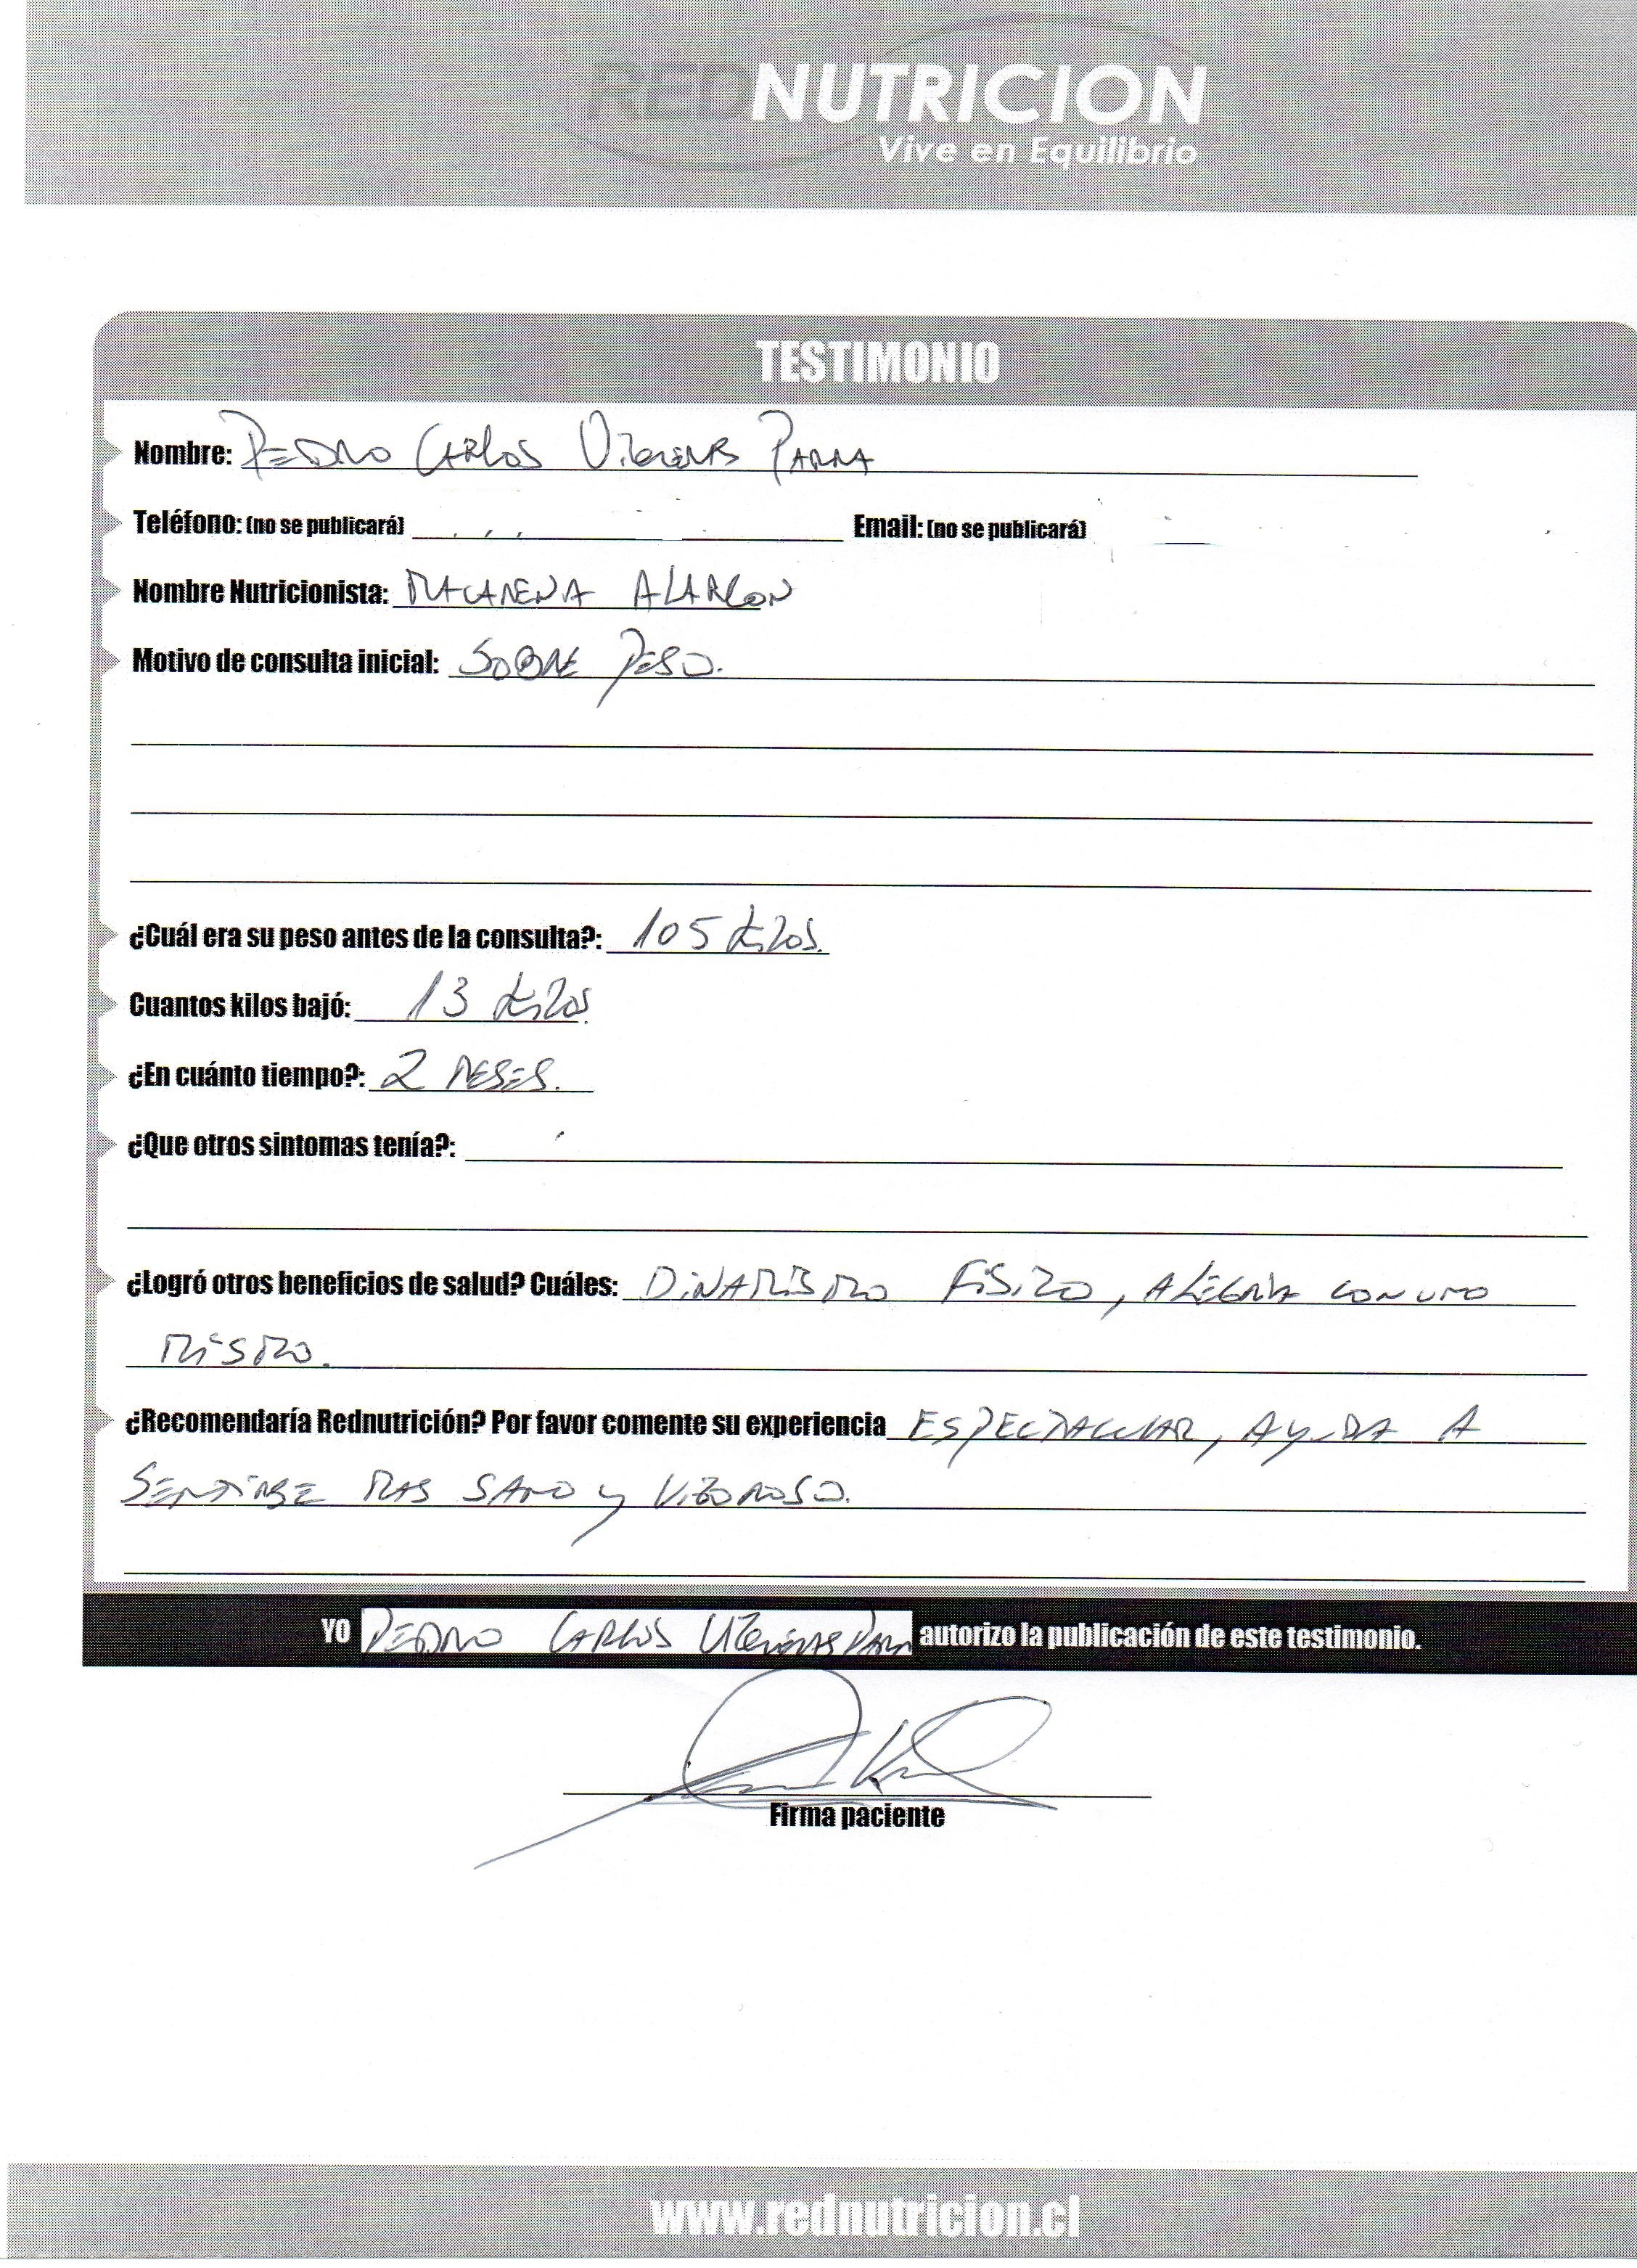 REDNUTRICION
Vive en Equilibrio
TESTIMONIO
Nombre: PEDRO CARLOS PARRA
Teléfono: (no se publicará) Email: (no se publicará)
Nombre Nutricionista: MACARENA ALARCON
Motivo de consulta inicial: SOBRE PESO.
¿Cuál era su peso antes de la consulta?: 105 kilos.
Cuantos kilos bajó: 13 kilos.
¿En cuánto tiempo?: 2 MESES.
¿Que otros sintomas tenía?:
¿Logró otros beneficios de salud? Cuáles: DINAMISMO FISICO, ALEGRIA CON UNO
MISMO.
¿Recomendaría Rednutrición? Por favor comente su experiencia ESPECTACULAR, AYUDA A
SENTIRSE MAS SANO Y VIGOROSO.
YO PEDRO CARLOS PARRA autorizo la publicación de este testimonio.
Firma paciente
www.rednutricion.cl